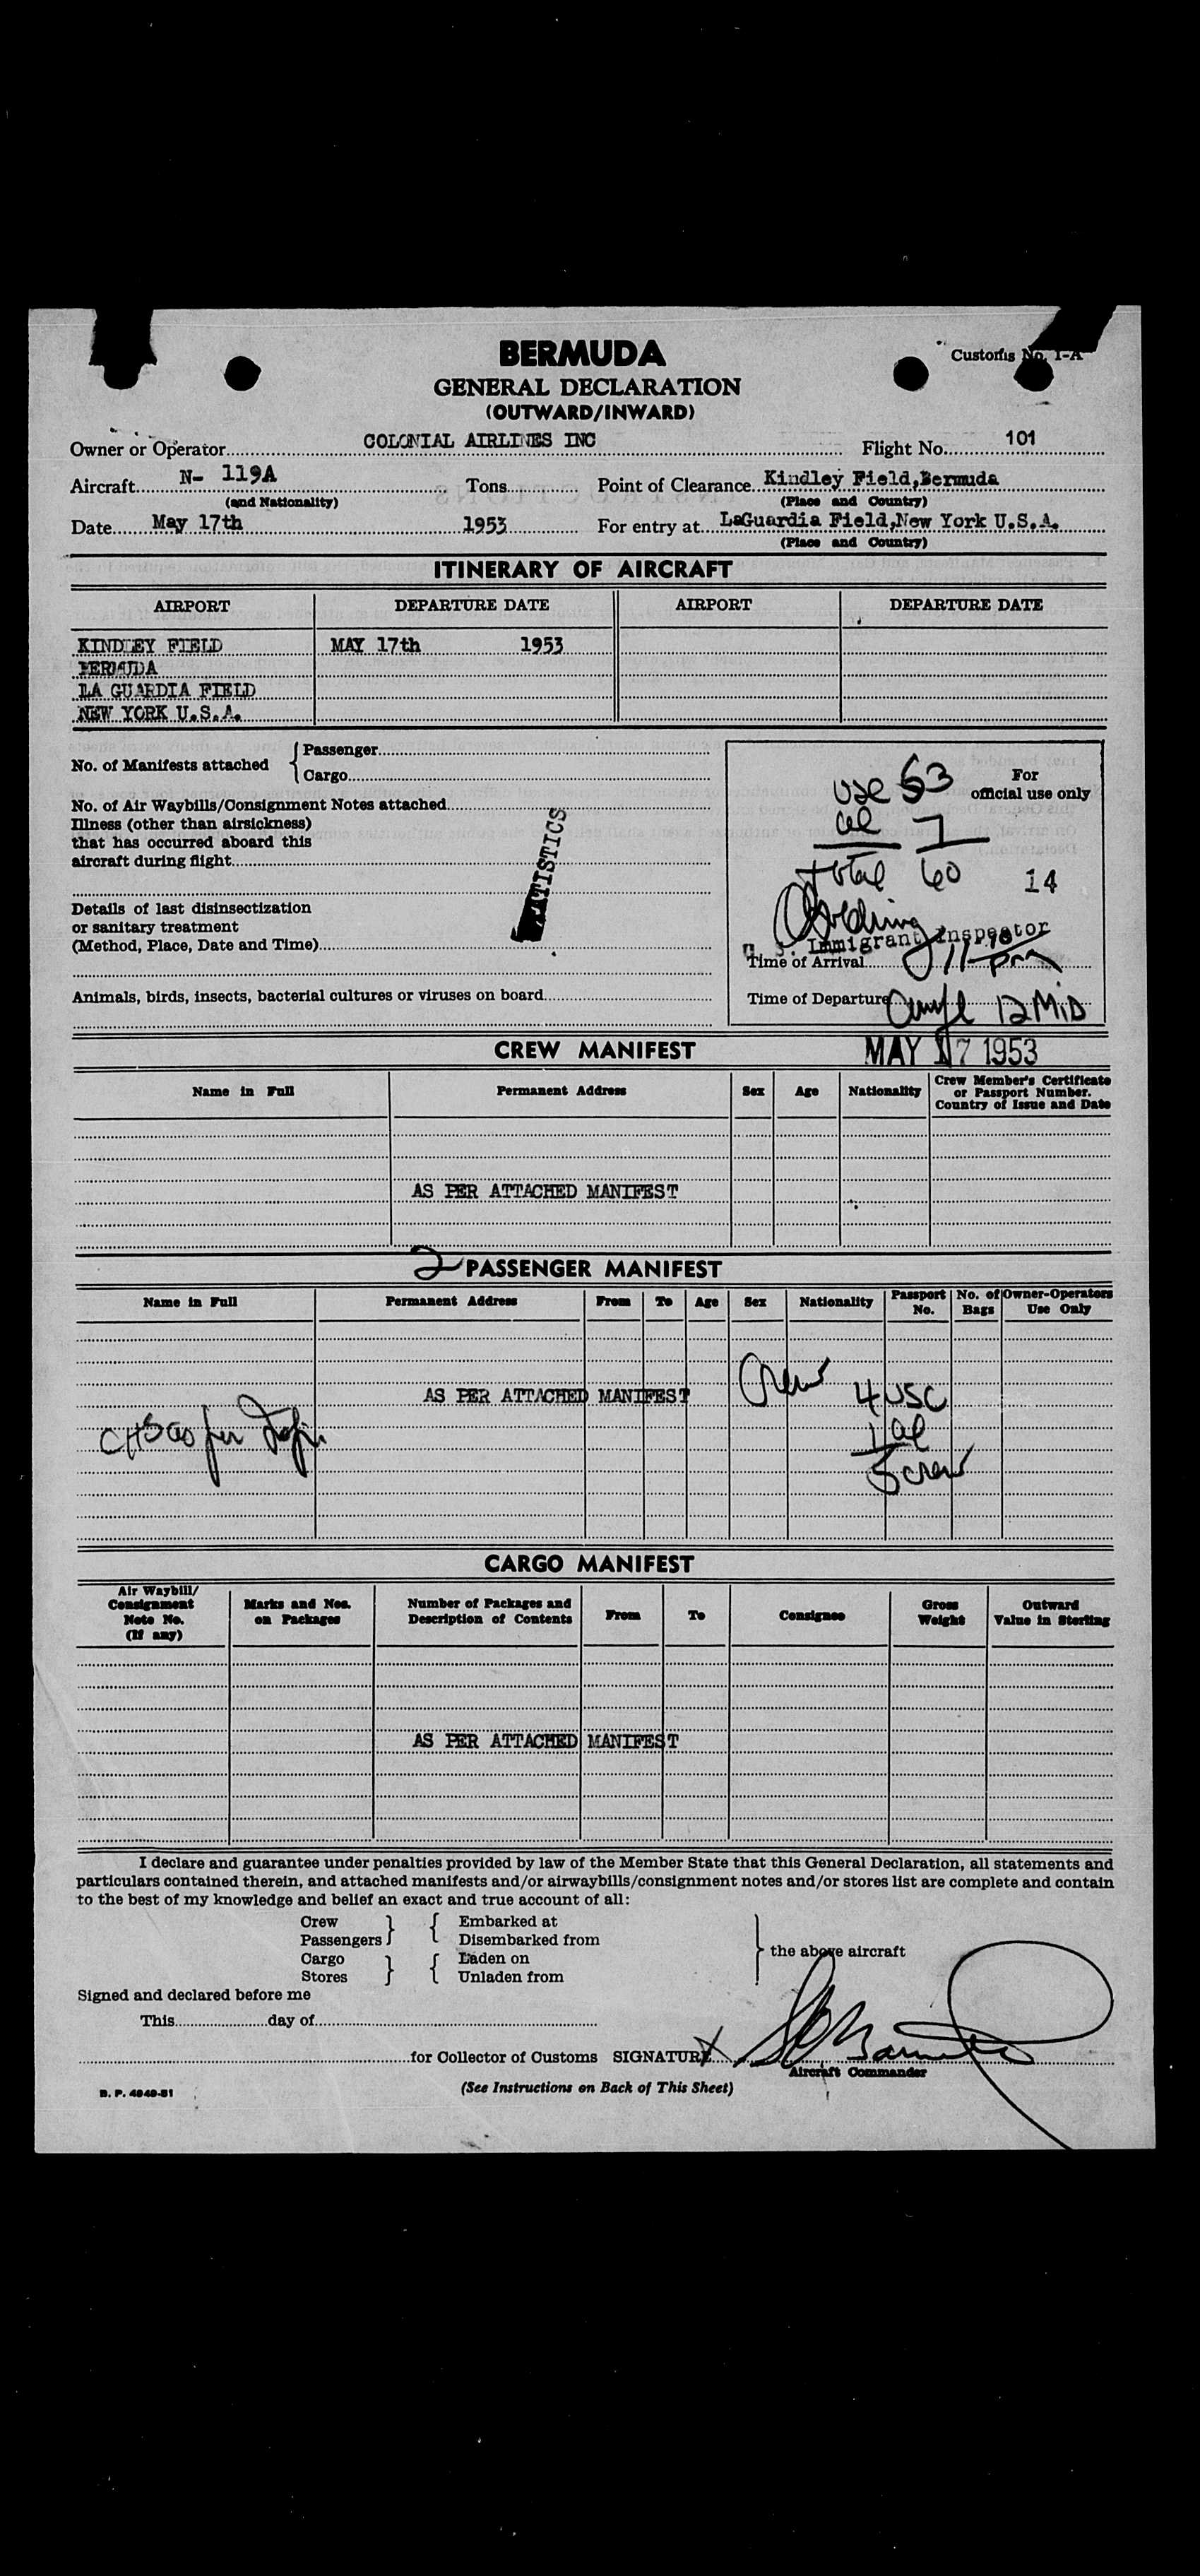 BERMUDA
Customs No. 1-A
GENERAL DECLARATION
(OUTWARD/INWARD)
Owner or Operator COLONIAL AIRLINES INC Flight No. 101
Aircraft N- 119A Tons Point of Clearance Kindley Field, Bermuda
(and Nationality) (Place and Country)
Date May 17th 1953 For entry at LaGuardia Field, New York U.S.A.
(Place and Country)
ITINERARY OF AIRCRAFT
AIRPORT DEPARTURE DATE AIRPORT DEPARTURE DATE
KINDLEY FIELD MAY 17th 1953
BERMUDA
LA GUARDIA FIELD
NEW YORK U.S.A.
No. of Manifests attached { Passenger
Cargo
For
official use only
USC 53
al 7
total 60
14
No. of Air Waybills/Consignment Notes attached
Illness (other than airsickness)
that has occurred aboard this
aircraft during flight
ATISTICS
Details of last disinsectization
or sanitary treatment
(Method, Place, Date and Time)
U. S. Immigrant Inspector
Time of Arrival 11 10 pm
Animals, birds, insects, bacterial cultures or viruses on board
Time of Departure 12 MiD
MAY 17 1953
CREW MANIFEST
Name in Full Permanent Address Sex Age Nationality Crew Member's Certificate or Passport Number. Country of Issue and Date
AS PER ATTACHED MANIFEST
2 PASSENGER MANIFEST
Name in Full Permanent Address From To Age Sex Nationality Passport No. No. of Bags Owner-Operators Use Only
AS PER ATTACHED MANIFEST
Crew 4 USC
1 al
5 crew
CARGO MANIFEST
Air Waybill/ Consignment Note No. (If any) Marks and Nos. on Packages Number of Packages and Description of Contents From To Consignee Gross Weight Outward Value in Sterling
AS PER ATTACHED MANIFEST
I declare and guarantee under penalties provided by law of the Member State that this General Declaration, all statements and
particulars contained therein, and attached manifests and/or airwaybills/consignment notes and/or stores list are complete and contain
to the best of my knowledge and belief an exact and true account of all:
Crew } { Embarked at
Passengers Disembarked from
Cargo } { Laden on
Stores Unladen from
} the above aircraft
Signed and declared before me
This day of
for Collector of Customs SIGNATURE X
Aircraft Commander
B. P. 4949-51
(See Instructions on Back of This Sheet)